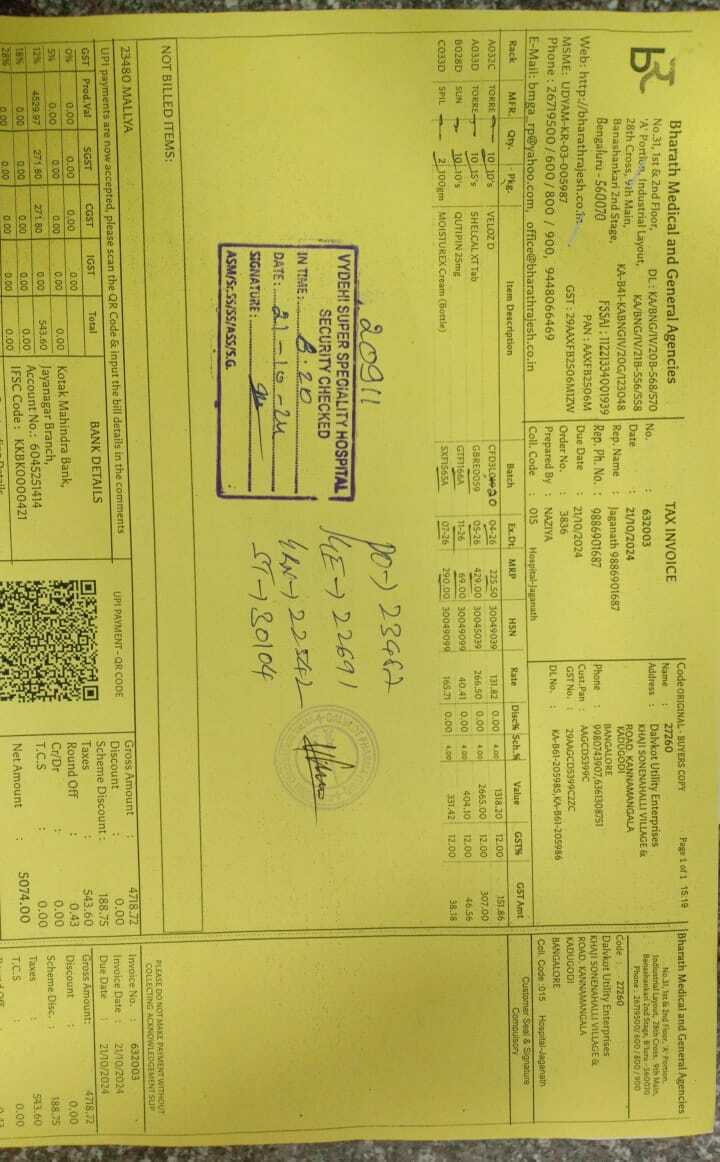 Bharath Medical and General Agencies
No.31, 1st & 2nd Floor, DL : KA/BNG/IV/20B-568/570
'A' Portion, Industrial Layout, KA/BNG/IV/21B-556/558
28th Cross, 9th Main, KA-B41-KABNGIV/20G/123048
Banashankari 2nd Stage, FSSAI : 11221334001939
Bengaluru - 560070 PAN : AAXFB2506M
Web: http://bharathrajesh.co.in GST : 29AAXFB2506M1ZW
MSME: UDYAM-KR-03-005987
Phone : 26719500 / 600 / 800 / 900, 9448066469
E-Mail: bmga_rp@yahoo.com, office@bharathrajesh.co.in
TAX INVOICE
No. : 632003
Date : 21/10/2024
Rep. Name : Jaganath 9886901687
Rep. Ph. No. : 9886901687
Due Date : 21/10/2024
Order No. : 3836
Prepared By : NAZIYA
Coll. Code : 015 Hospital-Jaganath
Code ORIGINAL - BUYERS COPY Page 1 of 1 15:19
27260
Name : Dalvkot Utility Enterprises
Address : KHAJI SONENAHALLI VILLAGE &
ROAD, KANNAMANGALA
KADUGODI
BANGALORE
Phone : 9980743907,6361308751
Cust.Pan : AAGCD5399C
GST No. : 29AAGCD5399C2ZC
DL No. : KA-B61-205985,KA-B61-205986
Rack MFR. Qty. Pkg. Item Description Batch Ex.Dt. MRP HSN Rate Disc% Sch.% Value GST% GST Amt
A032C TORRE 10 10's VELOZ D 04-26 225.50 30049039 131.82 0.00 4.00 1318.20 12.00 151.86
A033D TORRE 10 15's SHELCAL XT Tab GBRE0059 05-26 429.00 30045039 266.50 0.00 4.00 2665.00 12.00 307.00
B028D SUN 10 10's QUTIPIN 25mg GTF1166A 11-26 69.00 30049099 40.41 0.00 4.00 404.10 12.00 46.56
C033D SPIL 2 100gm MOISTUREX Cream (Bottle) SXF1565A 07-26 290.00 30049099 165.71 0.00 4.00 331.42 12.00 38.18
20911
VYDEHI SUPER SPECIALITY HOSPITAL
SECURITY CHECKED
IN TIME: 8.20
DATE: 21-10-24
SIGNATURE:
ASM/Sr.SS/SS/ASS/S.G.
PO-> 23482
ME-> 22691
GRN-> 22542
ST-> 30104
NOT BILLED ITEMS:
23480 MALLYA
UPI payments are now accepted, please scan the QR Code & input the bill details in the comments
GST Prod.Val SGST CGST IGST Total
0% 0.00 0.00 0.00 0.00 0.00
5% 0.00 0.00 0.00 0.00 0.00
12% 4529.97 271.80 271.80 0.00 543.60
18% 0.00 0.00 0.00 0.00 0.00
28% 0.00 0.00 0.00 0.00 0.00
BANK DETAILS
Kotak Mahindra Bank,
Jayanagar Branch,
Account No.: 6045251414
IFSC Code : KKBK0000421
UPI PAYMENT - QR CODE
Gross Amount : 4718.72
Discount : 0.00
Scheme Discount : 188.75
Taxes : 543.60
Round Off : 0.43
Cr/Dr : 0.00
T.C.S : 0.00
Net Amount : 5074.00
Bharath Medical and General Agencies
No.31, 1st & 2nd Floor, 'A' Portion,
Industrial Layout, 28th Cross, 9th Main,
Banashankari 2nd Stage, B'luru - 560070
Phone : 26719500/ 600 / 800 / 900
Code : 27260
Dalvkot Utility Enterprises
KHAJI SONENAHALLI VILLAGE &
ROAD, KANNAMANGALA
KADUGODI
BANGALORE
Coll. Code :015 Hospital-Jaganath
Customer Seal & Signature
Compulsory
PLEASE DO NOT MAKE PAYMENT WITHOUT
COLLECTING ACKNOWLEDGEMENT SLIP
Invoice No. : 632003
Invoice Date : 21/10/2024
Due Date : 21/10/2024
Gross Amount: 4718.72
Discount : 0.00
Scheme Disc. : 188.75
Taxes : 543.60
T.C.S : 0.00